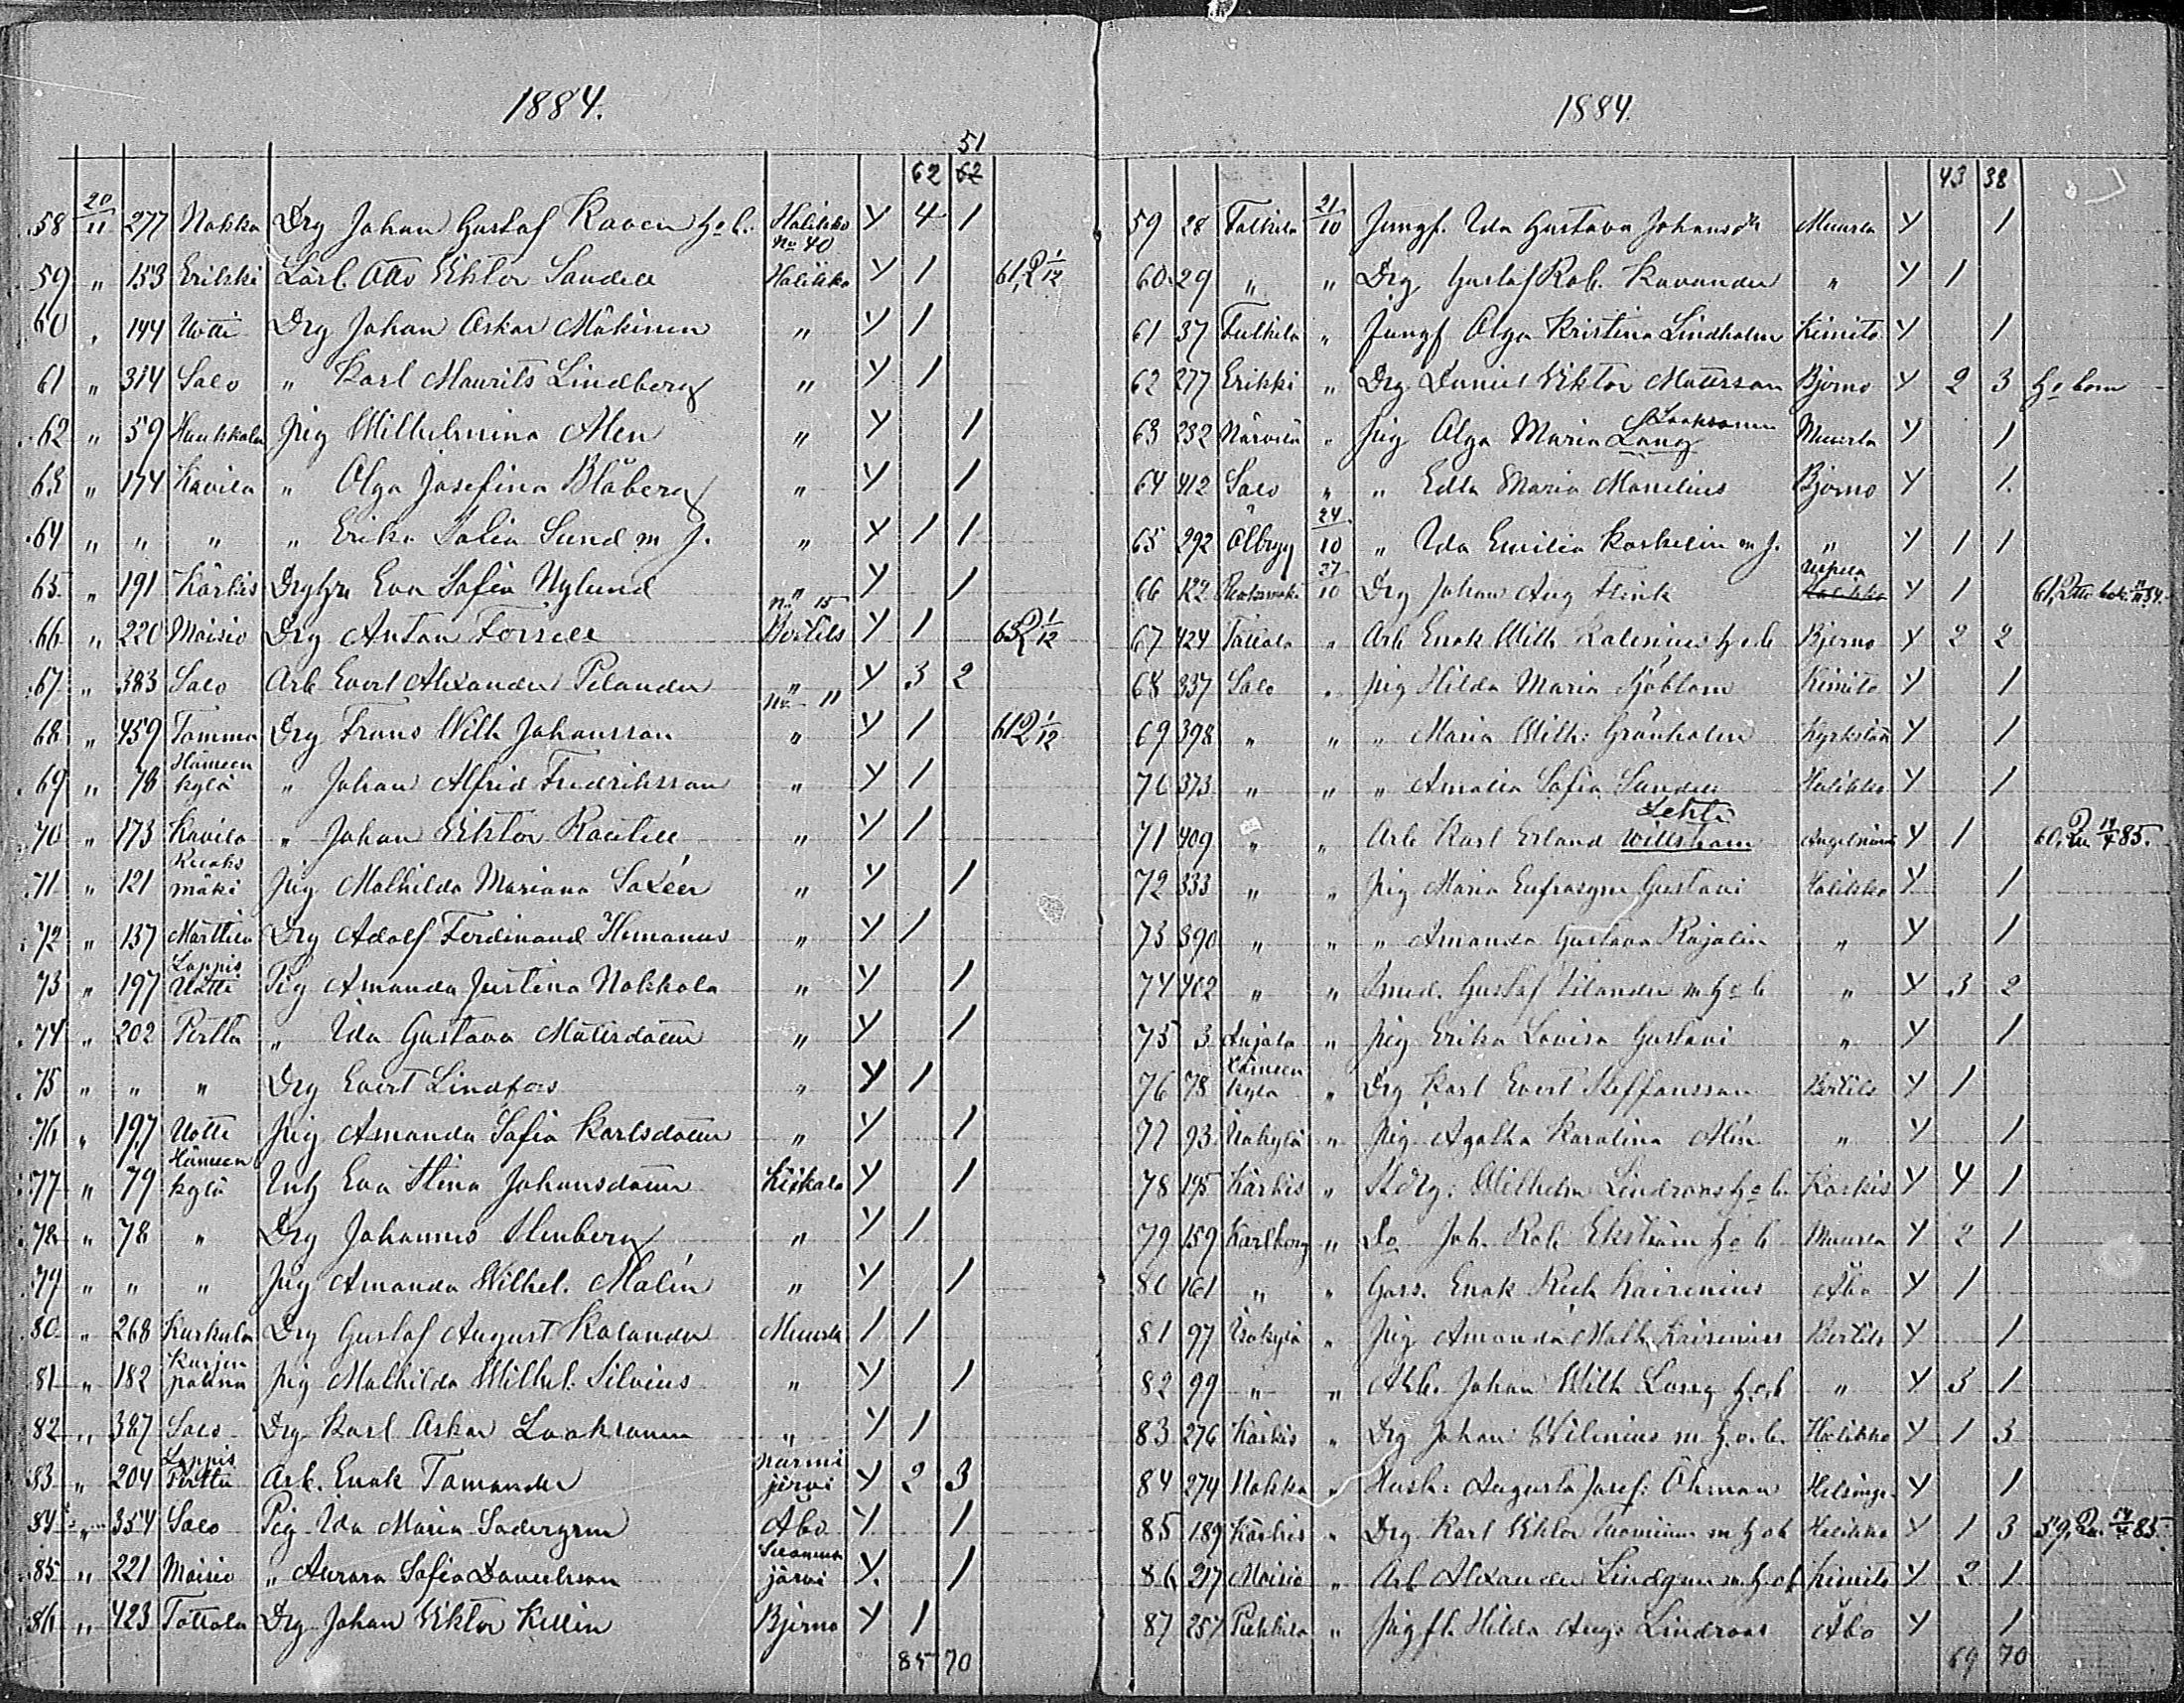 1884.
51
62 62
58 20/11 277 Nokka Drg Johan Gustaf Kaven h o b. Halikko Y 4 1
no 40
59 " 153 Erikski Lärl. Otto Viktor Sandell Halikko Y 1 61, 1/12
60 " 144 Uotti Drg Johan Oskar Mäkinen " Y 1
61 " 314 Salo " Karl Maurits Lindberg " Y 1
62 " 59 Pig Wilhelmina Alen " Y 1
63 " 174 Kavila " Olga Josefina Blåberg " Y 1
64 " " " " Erika Sund m f. " Y 1 1
65 " 191 Kärkis Eva Sofia Nylund " Y 1
no 15
66 " 220 Moisio Drg Anton Forsell Bertils Y 1 1/12
67 " 383 Salo Arb Evert Alexander Pilander " Y 3 2
no 11
68 " 459 Tamma Drg Frans Wilh Johansson " Y 1 61 1/12
69 " 78 Hämeen kylä " Johan Alfrid Fredriksson " Y 1
70 " 173 Kavila " Johan Viktor Rautell " Y 1
71 " 121 mäki Pig Mathilda Mariana Saxeer " Y 1
72 " 137 Märttilä Drg Adolf Ferdinand Homanus " Y 1
73 " 197 Lappis Uotti Pig Amanda Justina Nokkala " Y 1
74 " 202 Pertta " Ida Gustava Mattsdotter " Y 1
75 " " " Drg Evert Lindfors " Y 1
76 " 197 Uotti Pig Amanda Sofia Karlsdotter " Y 1
77 " 79 Hämeen kylä Inh Eva Stina Johansdotter Kiikala Y 1
78 " 78 " Drg Johannes Stenberg " Y 1
79 " " " Pig Amanda Wilhel. Malin " Y 1
80 " 268 Kurkela Drg Gustaf August Kalander Muurla 1 1
81 " 182 Kurjen pahna Pig Mathilda Wilhel. Silvius " Y 1
82 " 387 Salo Drg Karl Oskar Laaksonen " Y 1
83 " 204 Lappis Perttu Arb. Enok Tamander Nurmi järvi Y 2 3
84 " 354 Salo Pig Ida Maria Sadergren Åbo Y 1
85 " 221 Moisio " Aurora Sofia Danielsson järvi Y. 1
86 " 423 Tottola Drg Johan Viktor Killin Bjerno Y 1
85 70
1884.
43 38
59 28 21/10 Jungf. Ida Gustava Johansdr Muurla Y 1
60 29 " " Drg Gustaf Rob. Kavander " Y 1
61 37 " Jungf Olga Kristina Lindholm Kimito Y 1
62 277 Erikki " Drg Daniel Viktor Mattsson Bjerno Y 2 3 h o barn
Laaksonen
63 232 " Pig Olga Maria Lang Muurla Y 1
64 412 Salo " " Edla Maria Manelius Bjerno Y 1.
65 292 Ölbryg 24/10 " Ida Emilia Koskelin m f. " Y 1 1
66 122 27/10 Drg Johan Aug Flink Y 1 61,
67 424 Tottola " Arb Enok Wilh Kalenius h o b Bjerno Y 2 2
68 337 Salo " Pig Hilda Maria Sjöblom Kimito Y 1
69 398 " " " Maria Wilh: Grönholm Kyrkslätt Y 1
70 373 " " " Amalia Sofia Sandell Halikko Y 1
Lehti
71 409 " " Arb Karl Erland Willstram Angelniemi Y 1 60, 85.
72 333 " " Pig Maria Eufrasyne Gustavi Halikko Y 1
73 390 " " " Amanda Gustava Rajalin " Y 1
74 402 " " Smed. Gustaf Tilander m h o b " Y 3 2
75 3 Anjala " Pig Erika Lovisa Gustavi " Y 1
76 78 Hämeen kylä " Drg Karl Evert Steffansson Bertils Y 1
77 93 Isokylä " Pig Agatha Karolina Alin " Y 1
78 195 Kärkis " Wilhelm Lindroos h o b. Koskis Y 4 1
79 159 Karlberg " Do Joh. Rob Ekström h o b Muurla Y 2 1
80 161 " " Enok Kairenius Åbo Y 1
81 97 Isokylä " Pig Amanda Math. Kairenius Bertils Y 1
82 99 " " Johan Wilh h o b " Y 3 1
83 276 Kärkis " Drg Johan Wilenius m h. o. b. Halikko Y 1 3
84 274 Nokka " Augusta Josef: Öhman Helsingf. Y 1
85 189 Kärkis " Drg Karl Viktor Tuominen m h o b Halikko Y 1 3 59, 85.
86 217 Moisio " Arb Alexander Lindgren m. h o b Kimito Y 2 1
87 257 " Hilda Aug. Lindroos Åbo Y 1
69 70